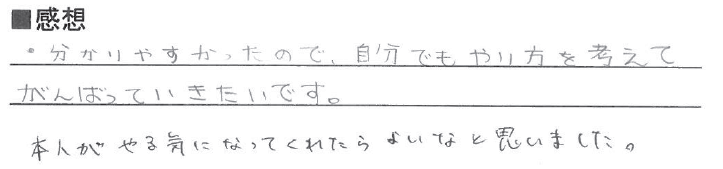 ■感想
・分かりやすかったので、自分でもやり方を考えて
がんばっていきたいです。
本人がやる気になってくれたらよいなと思いました。